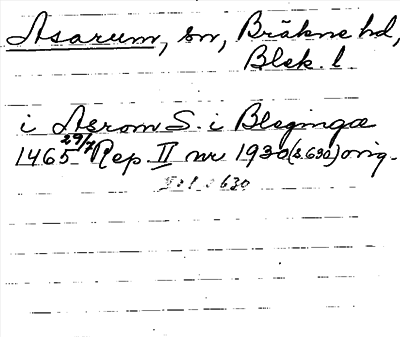 Asarum, sn, Bräkne hd,
Blek. l.
i Asrom S. i Blegingæ
1465 29/7 Rep. II nr 1930 (s. 630) orig.
630